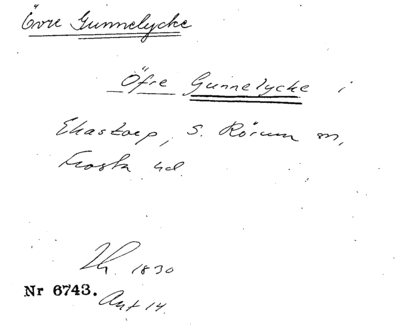 Övre Gunnelycke
Öfre Gunnelycke i
Ekastorp, S. Rörum sn,
Frosta hd.
1830
Nr 6743.
Akt 14.